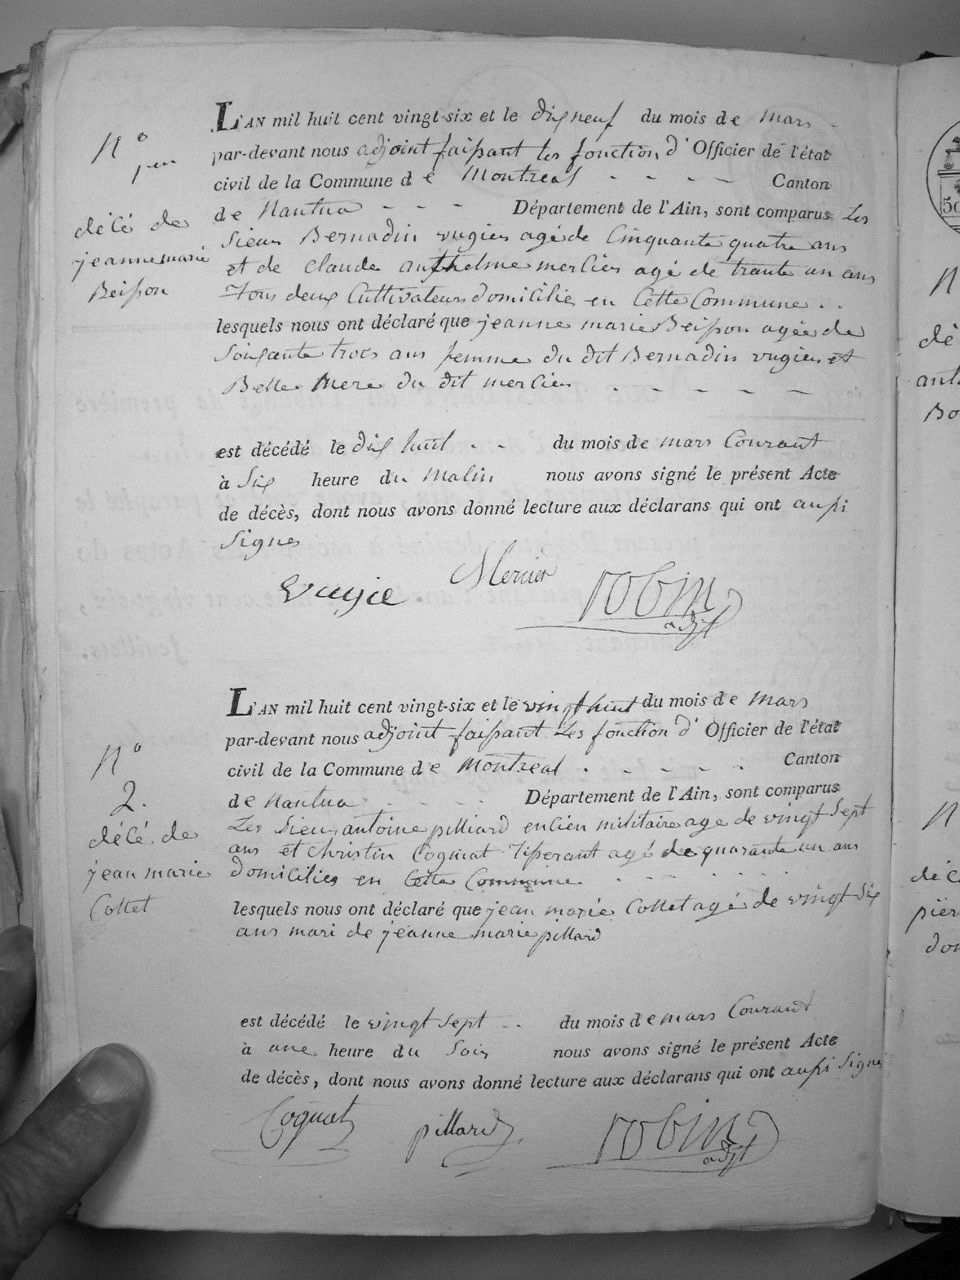 N° 1er
décé de
jeanne marie
Beisson
L'AN mil huit cent vingt-six et le dix neuf du mois de mars
par-devant nous adjoint faisant les fonction d'Officier de l'état
civil de la Commune de Montreal - - - - Canton
de Nantua - - - Département de l'Ain, sont comparus Les
Sieurs Bernadin vugier agé de Cinquante quatre ans
et de Claude anthelme mercier agé de trante un ans
Tous deux Cultivateurs domicilié en Cette Commune . .
lesquels nous ont déclaré que jeanne marie Beisson agée de
Soixante trois ans femme du dit Bernadin vugier et
Belle Mere du dit mercier . - - - -
est décédé le dix huit - - du mois de mars Courant
à Six heure du Matin nous avons signé le présent Acte
de décès, dont nous avons donné lecture aux déclarans qui ont aussi
Signes
Mercier robin
adjt
N°
2.
décé de
jean marie
Collet
L'AN mil huit cent vingt-six et le vingt huit du mois de mars
par-devant nous adjoint faisant Les fonction d'Officier de l'état
civil de la Commune de Montreal . - - - . Canton
de Nantua . - - - . Département de l'Ain, sont comparus
Les Sieur antoine pilliard encien militaire age de vingt Sept
ans et Christin Cognat Tisserant agé de quarante un ans
domiciliés en Cette Commune . - - . . .
lesquels nous ont déclaré que jean marie Collet agé de vingt Six
ans mari de jeanne marie pillard
est décédé le vingt sept - . du mois de mars Courant
à une heure du Soir nous avons signé le présent Acte
de décès, dont nous avons donné lecture aux déclarans qui ont aussi Signe
Cognat pillard robin
adjt
N
dé
ant
Bo
N
déc
pier
don